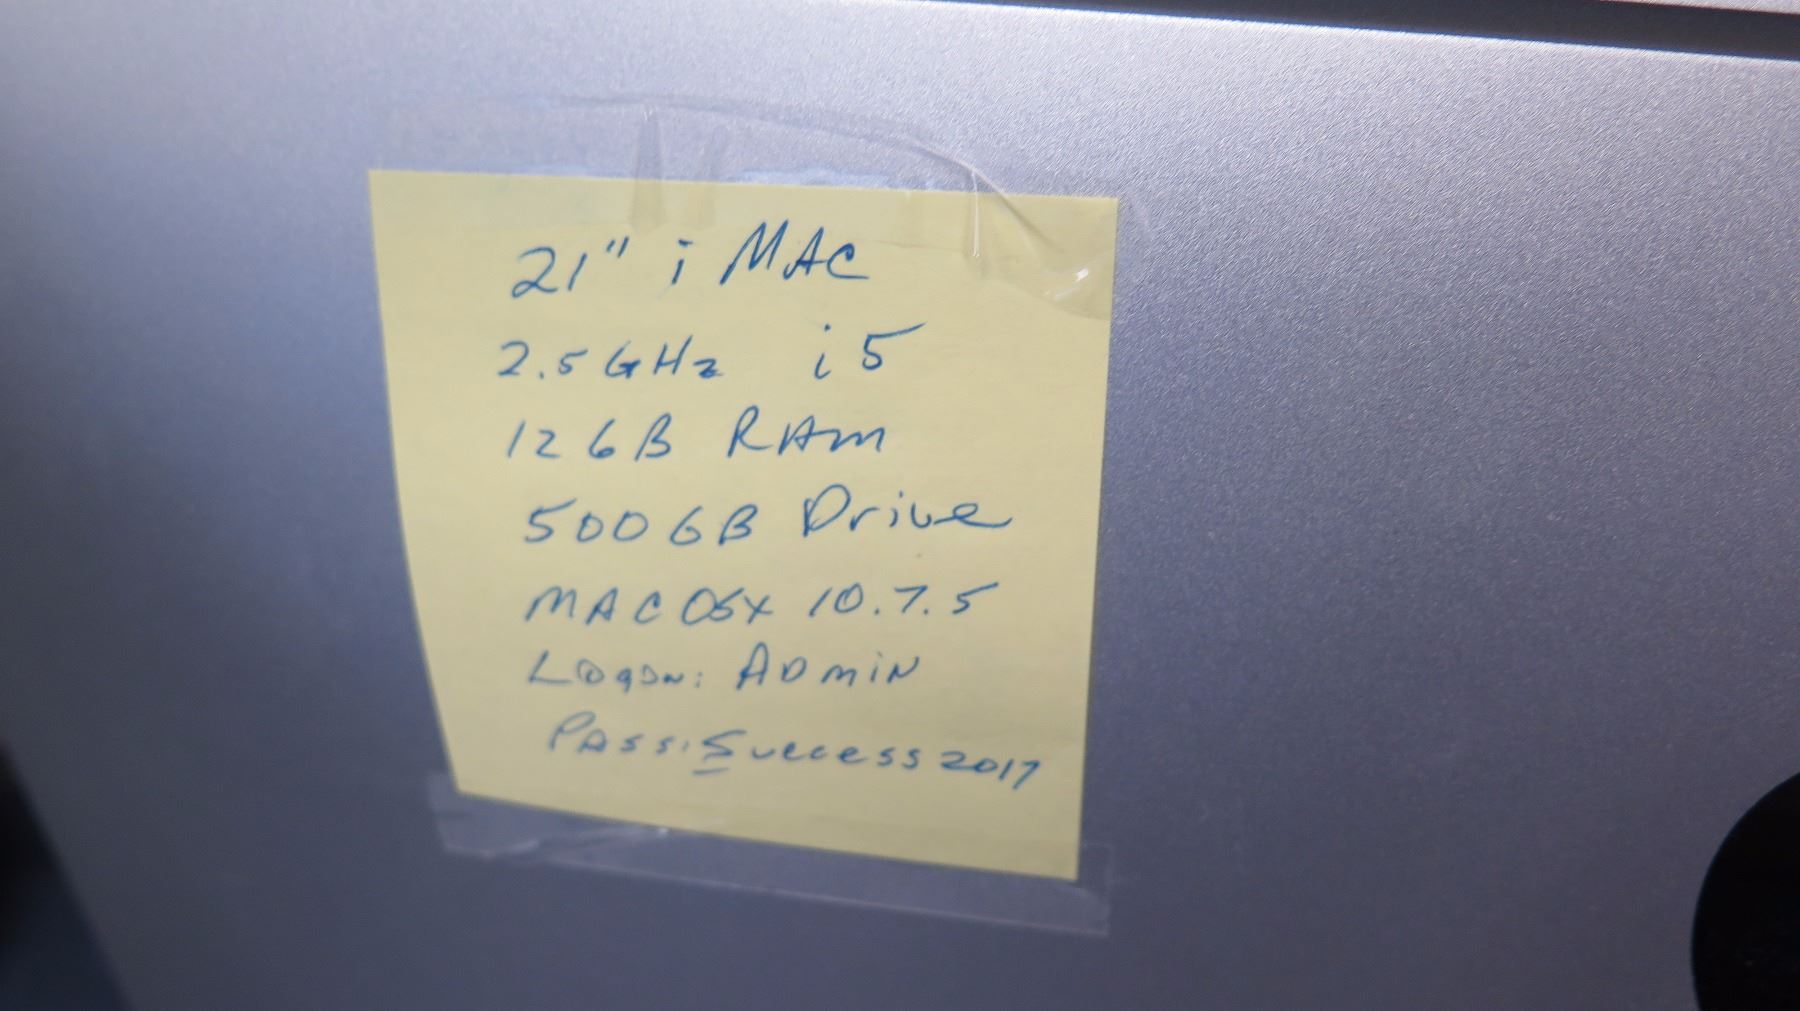 21" i MAC
2.5 GHz i5
12GB RAM
500GB Drive
MAC OSX 10.7.5
Logon: ADMIN
Pass: Success2017